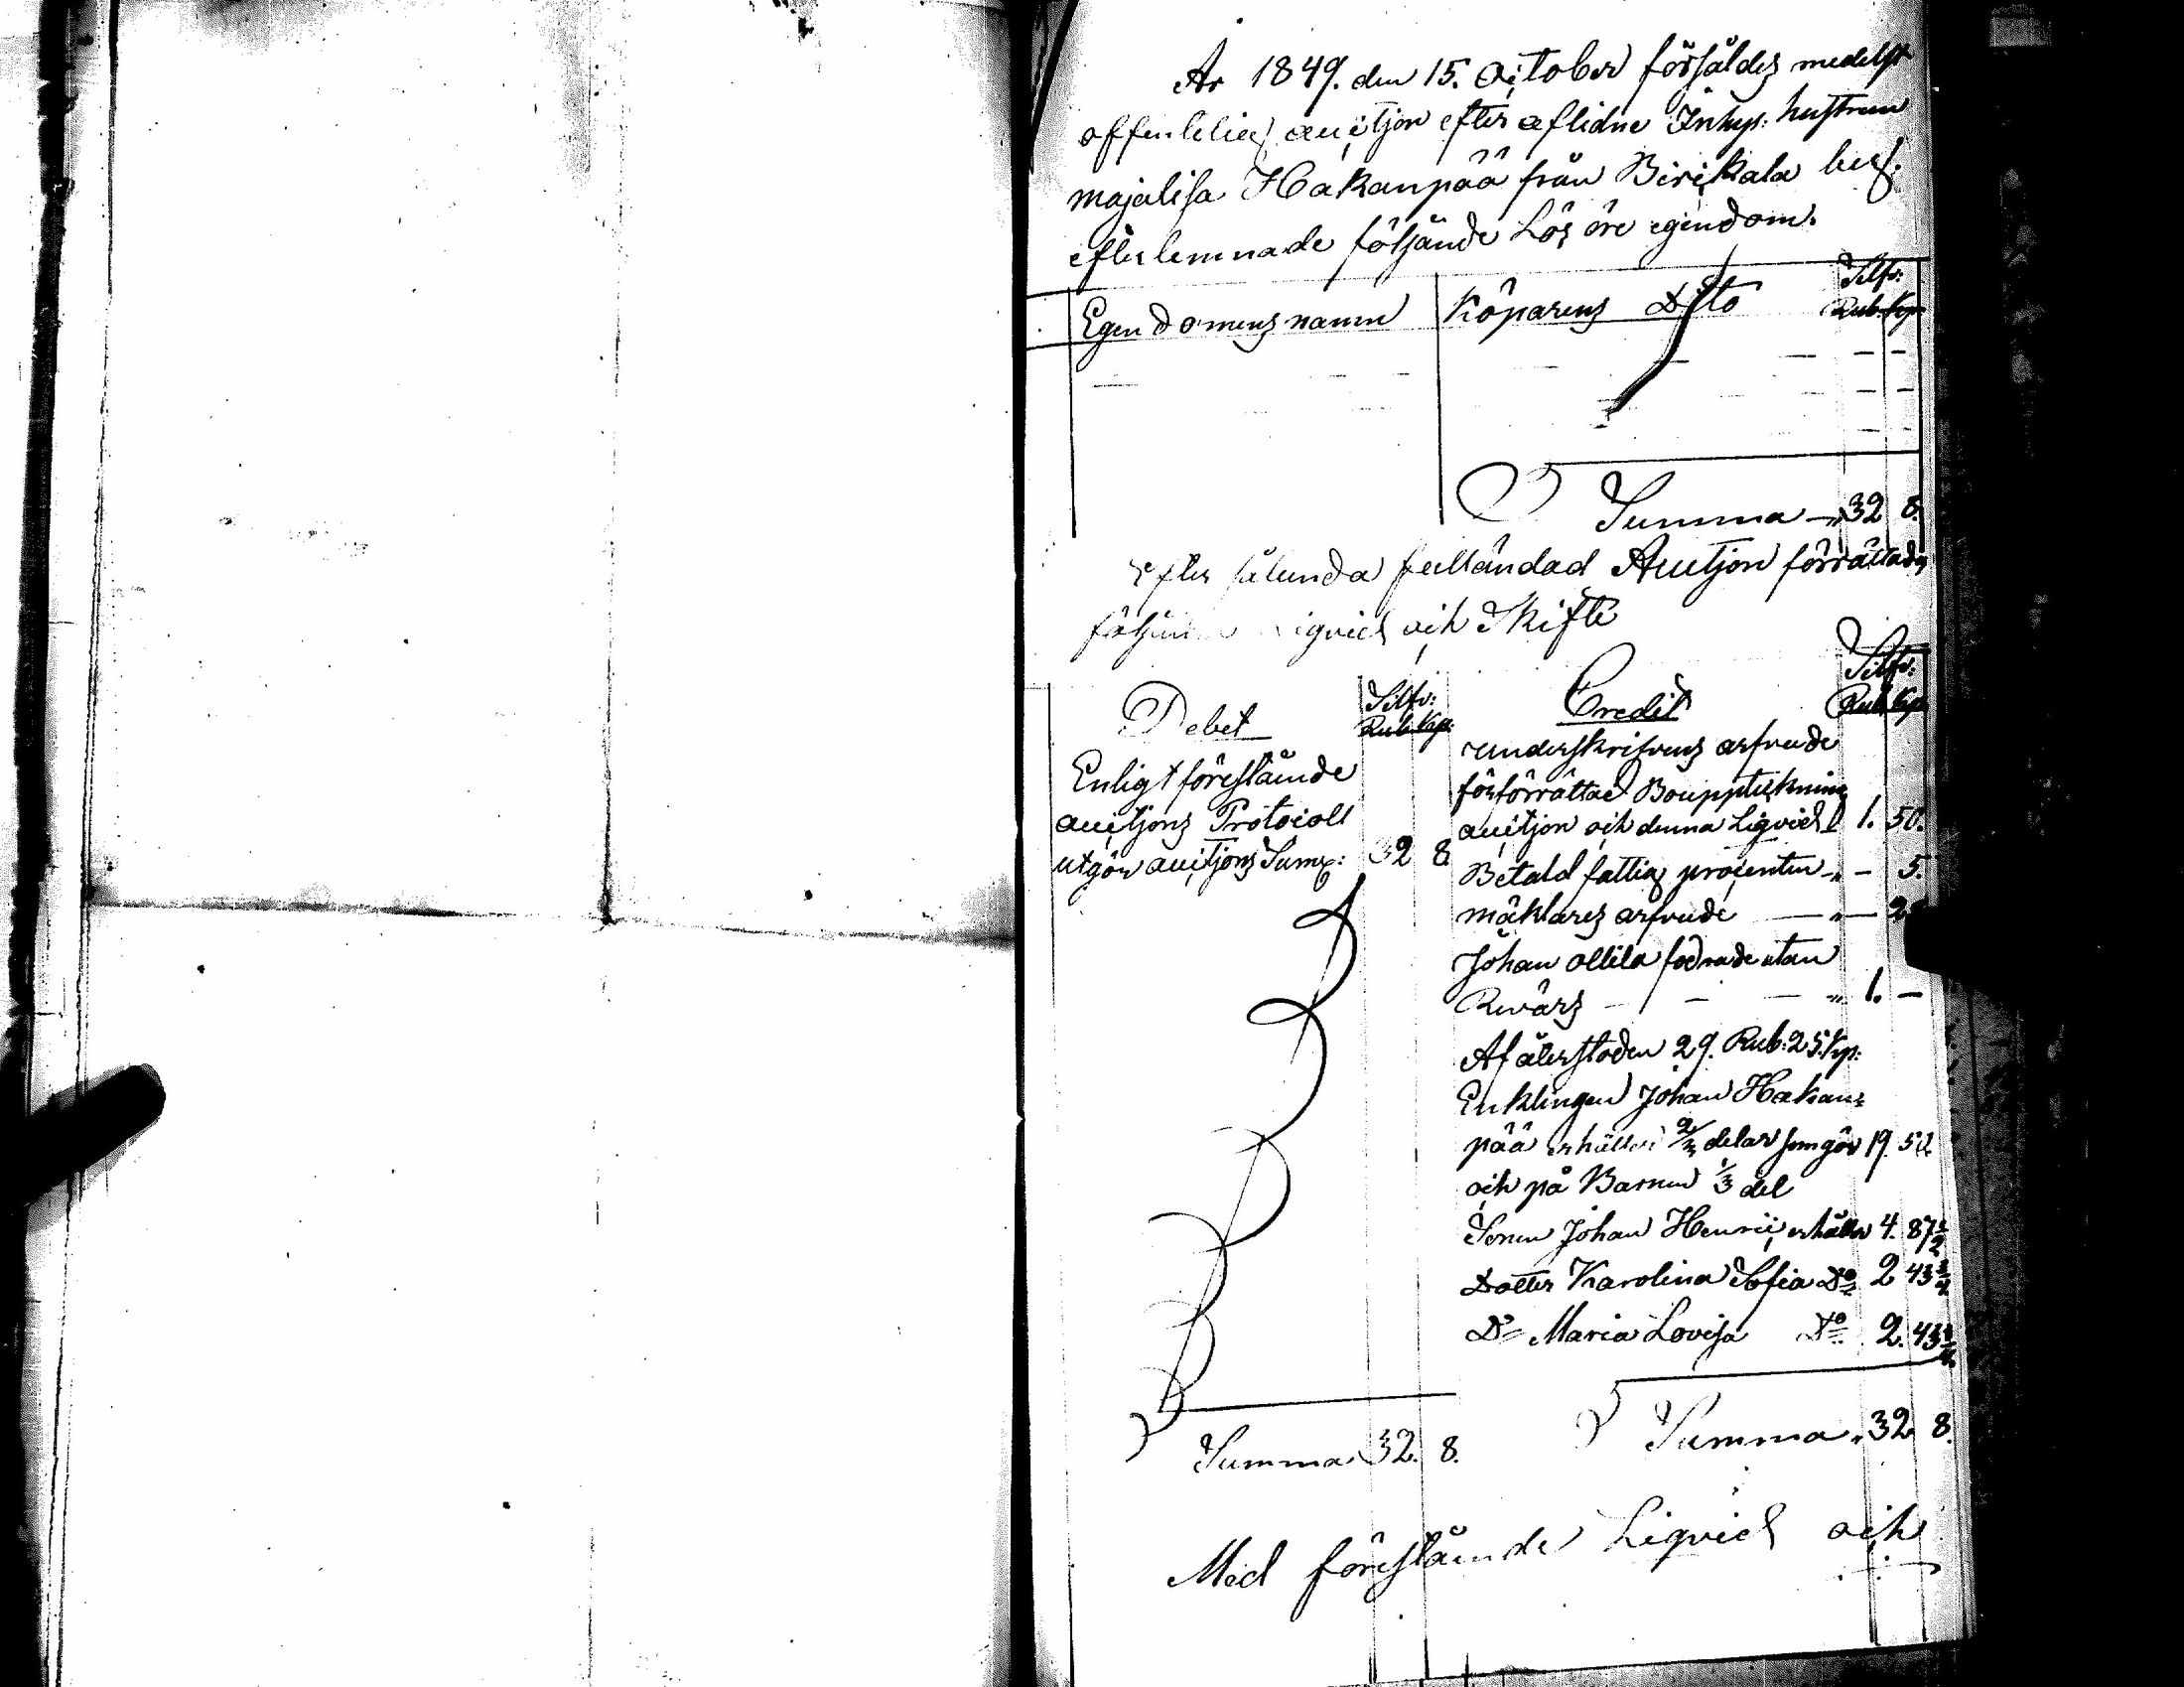 År 1849. den 15. October försåldes medelst
offentelig auctjon efter aflidne Inhys: hustrun
majalisa Hakanpää från Birckala
efterlemnade följande Lös öre egendom.
Egendomens namn Köparens Ditto Silfv: Rub. Kop
Summa — „ 32 8.
Efter sålunda fulländad Auctjon förrättades
följande Liqvid och Skifte
Debet Silfv: Rub. Kop:
Enligt förestående
auctjons Protocoll
utgör auctjons Suma: 32 8
Credit Silfv: Rub. Kop
underskrifvens arfvude
för förrättad Bouppteckning
auctjon och denna Liqvid 1. 50.
Betald fattig procenten „ — 5.
mäklares arfvude — „ —
Johan Ollila fodrade utan
Revärs — — — „ 1. —
Af återstoden 29. Rub: 25. Kop:
Enklingen Johan Hakan=
pää erhåller 2/3 delar som gör 19. 50
och på Barnen 1/3 del
Sonen Johan Henric erhåller 4. 87 1/2
Dotter Karolina Sofia Do 2 43 3/4
Do Maria Lovisa Do 2. 43 3/4
Summa 32. 8.
Summa „ 32 8.
Med förestående Liqvid och